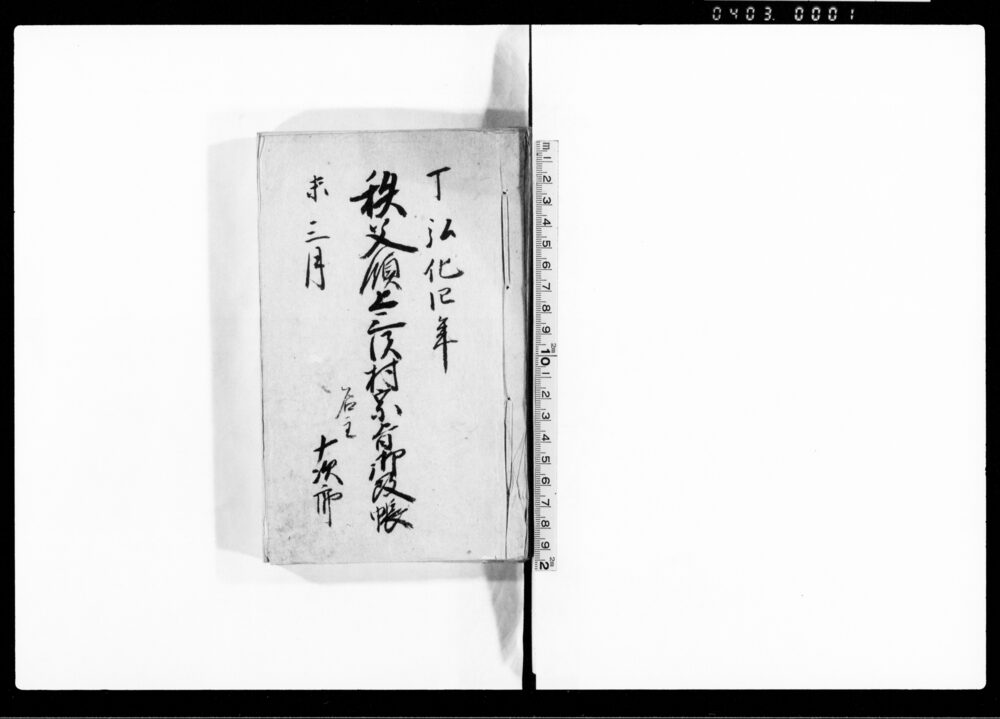 0403. 0001
丁弘化四年
秩父領上三沢村宗旨御改帳
未三月
名主
十次郎
m 1 2 3 4 5 6 7 8 9 10 1 2 3 4 5 6 7 8 9 2
2m
2m